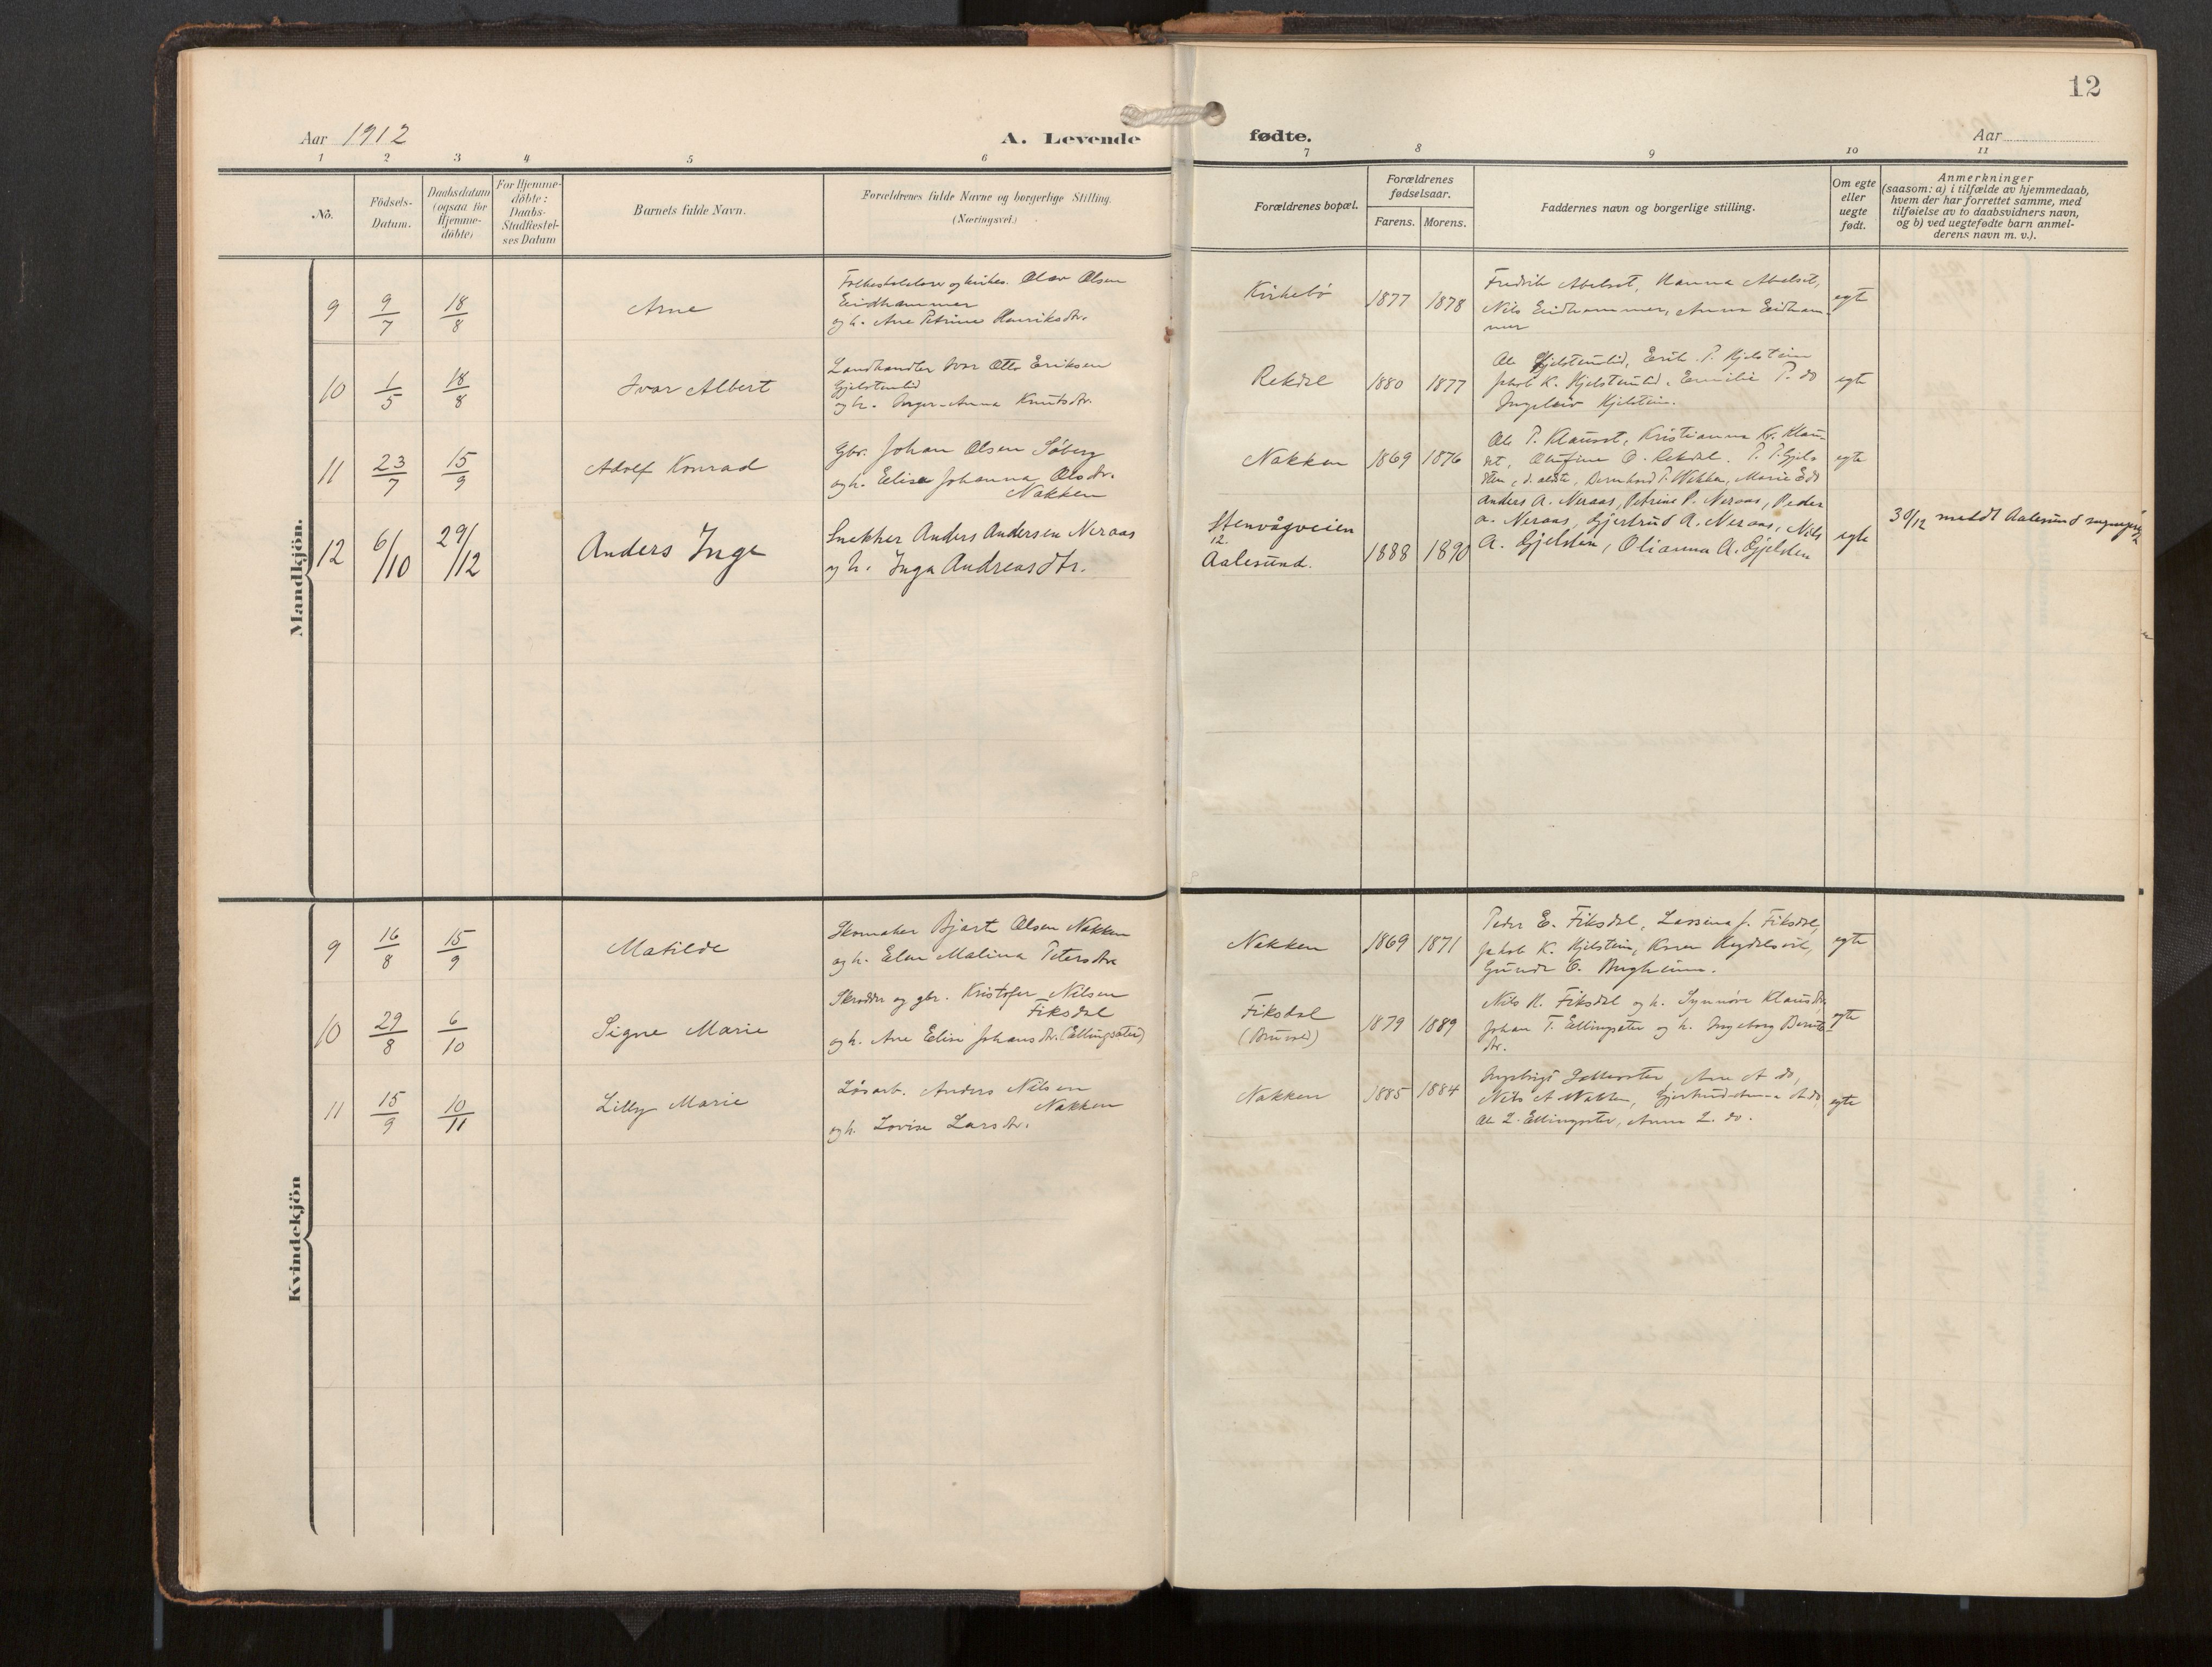 12
Aar 1912
A. Levende
fødte.
Aar
1 2 3 4 5 6 7 8 9 10 11
No.
Födsels-
Datum.
Daabsdatum
(ogsaa for
Hjemme-
döbte)
For Hjemme-
döbte:
Daabs-
Stadfestel-
ses Datum
Barnets fulde Navn.
Forældrenes fulde Navne og borgerlige Stilling.
(Næringsvei.)
Forældrenes bopæl.
Forældrenes
fødselsaar.
Farens. Morens.
Faddernes navn og borgerlige stilling.
Om egte
eller
uegte
født.
Anmerkninger
(saasom: a) i tilfælde av hjemmedaab,
hvem der har forrettet samme, med
tilføielse av to daabsvidners navn,
og b) ved uegtefødte barn anmel-
derens navn m. v.).
Mandkjön.
9 9/7 18/8 Arne
Olav Olsen
Eidhammer
og h. Ane Petrine Henriksdtr.
Kirkebø 1877 1878
Fredrik Abelset, Hanna Abelset,
Nils Eidhammer, Anna Eidham-
mer
egte
10 1/5 18/8 Ivar Albert
Landhandler Ivar Otto Eriksen
Gjelstenlid
og h. Inger-Anna Knutsdtr.
Rekdal 1880 1877
Ole Gjelstenlid, Erik P. Kjelstein
Jakob K. Kjelstenlid, Emilie P. do
Kjelstein.
egte
11 23/7 15/9 Adolf Konrad
Gbr. Johan Olsen Søberg
og h. Elise Johanna Olsdtr.
Nakken
Nakken 1869 1876
Ole P. Klauset, Kristianna Kr. Klau-
set, Olufine O. Rekdal. P. P. Gjel-
sten, d. eldste, Bernhard P. Nakken, Marie E do
egte
12 6/10 29/12 Anders Inge
Snekker Anders Andersen Neraas
og h. Inga Andreasdtr.
Stenvågveien
12.
Aalesund.
1888 1890
Anders A. Neraas, Petrine P. Neraas, Peder
A. Neraas, Gjertrud A. Neraas, Nils
A. Gjelsten, Olianna A. Gjelsten
egte
30/12 meldt Aalesund
Kvindekjön
9 16/8 15/9 Matilde
Skomaker Bjart Olsen Nakken
og h. Elen Malina Petersdtr
Nakken 1869 1871
Peder E. Fiksdal, Lassina J. Fiksdal,
Jakob K. Kjelstein, Karen
O.
egte
10 29/8 6/10 Signe Marie
Skrædder og gbr. Kristofer Nilsen
Fiksdal
og h. Ane Elise Johansdtr. (Ellingsæter)
Fiksdal
1879 1889
Nils K. Fiksdal og h. Synnøve Klausdtr,
Johan T. Ellingsæter og h. Ingeborg Bernts-
dtr.
egte
11 15/9 10/11 Lilly Marie
Løsarb. Anders Nilsen
Nakken
og h. Lovise Larsdtr.
Nakken 1885 1884
Ane A do,
Nils A Nakken, Gjertrud Anna A do,
Ole L. Ellingsæter, Anna L. do.
egte